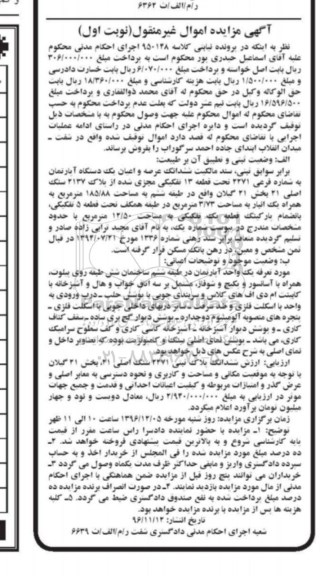 رم/الف/ت ۶۳۶۲
آگهی مزایده اموال غیرمنقول(نوبت اول)
نظر به اینکه در پرونده نیابتی کلاسه ۹۵۰۱۲۸ اجرای احکام مدنی محکوم
علیه آقای اسماعیل حیدری پور محکوم است به پرداخت مبلغ ۳۰۶/۰۰۰/۰۰۰
ریال بابت اصل خواسته و پرداخت مبلغ ۶/۰۷۰/۰۰۰ ریال بابت خسارت دادرسی
و ۱/۵۰۰/۰۰۰ ریال بابت هزینه کارشناسی و مبلغ ۱۸/۳۶۰/۰۰۰ ریال بابت
حق الوکاله وکیل در حق محکوم له آقای محمد ذوالفقاری و پرداخت مبلغ
۱۶/۵۹۶/۵۰۰ ریال بابت نیم عشر دولت که بعلت عدم پرداخت محکوم به حسب
تقاضای محکوم له اموال محکوم علیه جهت وصول محکوم به با مشخصات ذیل
توقیف گردیده است و دایره اجرای احکام مدنی در راستای ادامه عملیات
اجرایی با تقاضای محکوم له قصد دارد اموال توقیف شده واقع در شفت -
میدان انقلاب ابتدای جاده احمد سرگوراب را بفروش برساند.
الف: وضعیت ثبتی و تطبیق آن بر طبیعت:
برابر سوابق ثبتی، سند مالکیت ششدانگ عرصه و اعیان یک دستگاه آپارتمان
به شماره فرعی ۲۲۷۱ تحت قطعه ۱۳ تفکیکی مجزی شده از پلاک ۲۱۳۷ سنگ
اصلی ۲۱ بخش ۲۱ گیلان واقع در طبقه ششم به مساحت ۱۸۵/۸۸ مترمربع به
همراه یک انبار به مساحت ۳/۷۳ مترمربع در طبقه همکف تحت قطعه ۵ تفکیکی،
بانضمام پارکینگ قطعه یک تفکیکی به مساحت ۱۲/۵۰ مترمربع با حدود
مشخصات مندرج در سند شماره یک، به نام آقای مجید ترابی زاده صادر و
تسلیم گردیده متعاقب برابر سند رهنی شماره ۱۳۳۶ مورخ ۱۳۹۴/۰۷/۲۱ در قبال
ثمن مشخص و معین در رهن بانک مسکن قرار گرفته است.
ب: وضعیت موجود و توضیحات اضافی:
مورد تعرفه یک واحد آپارتمان در طبقه ششم ساختمان شش طبقه روی پیلوت،
همراه با آسانسور و پکیج و شوفاژ، مشتمل بر سه اتاق خواب و هال و آشپزخانه با
کابینت ام دی اف های گلاس و سربندی چوبی با پوشش حلب - درب ورودی به
پنجره های منصوبه آلومینیوم دوجداره - پوشش دیوار گچ بری ساده - سقف کناف
کاری - و پوشش دیوار آشپزخانه - آشپزخانه کاشی کاری و کف سطوح سرامیک
نمای اصلی به شرح عکس های ذیل خواهد بود.
ارزیابی: ارزش ششدانگ پلاک ثبتی ۲۲۷۱ سنگ اصلی ۲۱ بخش ۲۱ گیلان
با توجه به موقعیت مکانی و مساحت و کاربری و نحوه دسترسی به معابر اصلی و
عرض گذر و امتیازات مربوطه و کیفیت اعیانات احداثی و قدمت و جمیع جهات
موثر در ارزیابی به مبلغ ۲/۹۲۰/۰۰۰/۰۰۰ ریال، معادل دویست و نود و چهار
میلیون تومان برآورد اعلام میگردد.
زمان برگزاری مزایده: روز شنبه مورخه ۱۳۹۶/۱۲/۰۵ ساعت ۱۰ الی ۱۱ ظهر
توضیح: ۱- مزایده با حضور نماینده دادسرا راس ساعت مقرر از قیمت
پایه کارشناسی شروع و به بالاترین قیمت پیشنهادی فروخته خواهد شد. ۲-
ده درصد مبلغ مورد مزایده شده را فی المجلس از خریدار اخذ و به حساب
سپرده دادگستری واریز و مابقی حداکثر ظرف مدت یکماه وصول می گردد ۳-
خریداران می توانند پنج روز قبل از مزایده ضمن هماهنگی با اجرای احکام
مدنی از مال مورد مزایده بازدید نمایند. ۴- در صورت انصراف برنده مزایده ده
درصد مبلغ پرداخت شده به نفع صندوق دادگستری ضبط می گردد. ۵- کلیه
هزینه ها پس از مزایده با پرنده مزایده خواهد بود.
تاریخ انتشار: ۹۶/۱۱/۱۲
شعبه اجرای احکام مدنی دادگستری شفت رم/الف/ت ۶۶۳۹